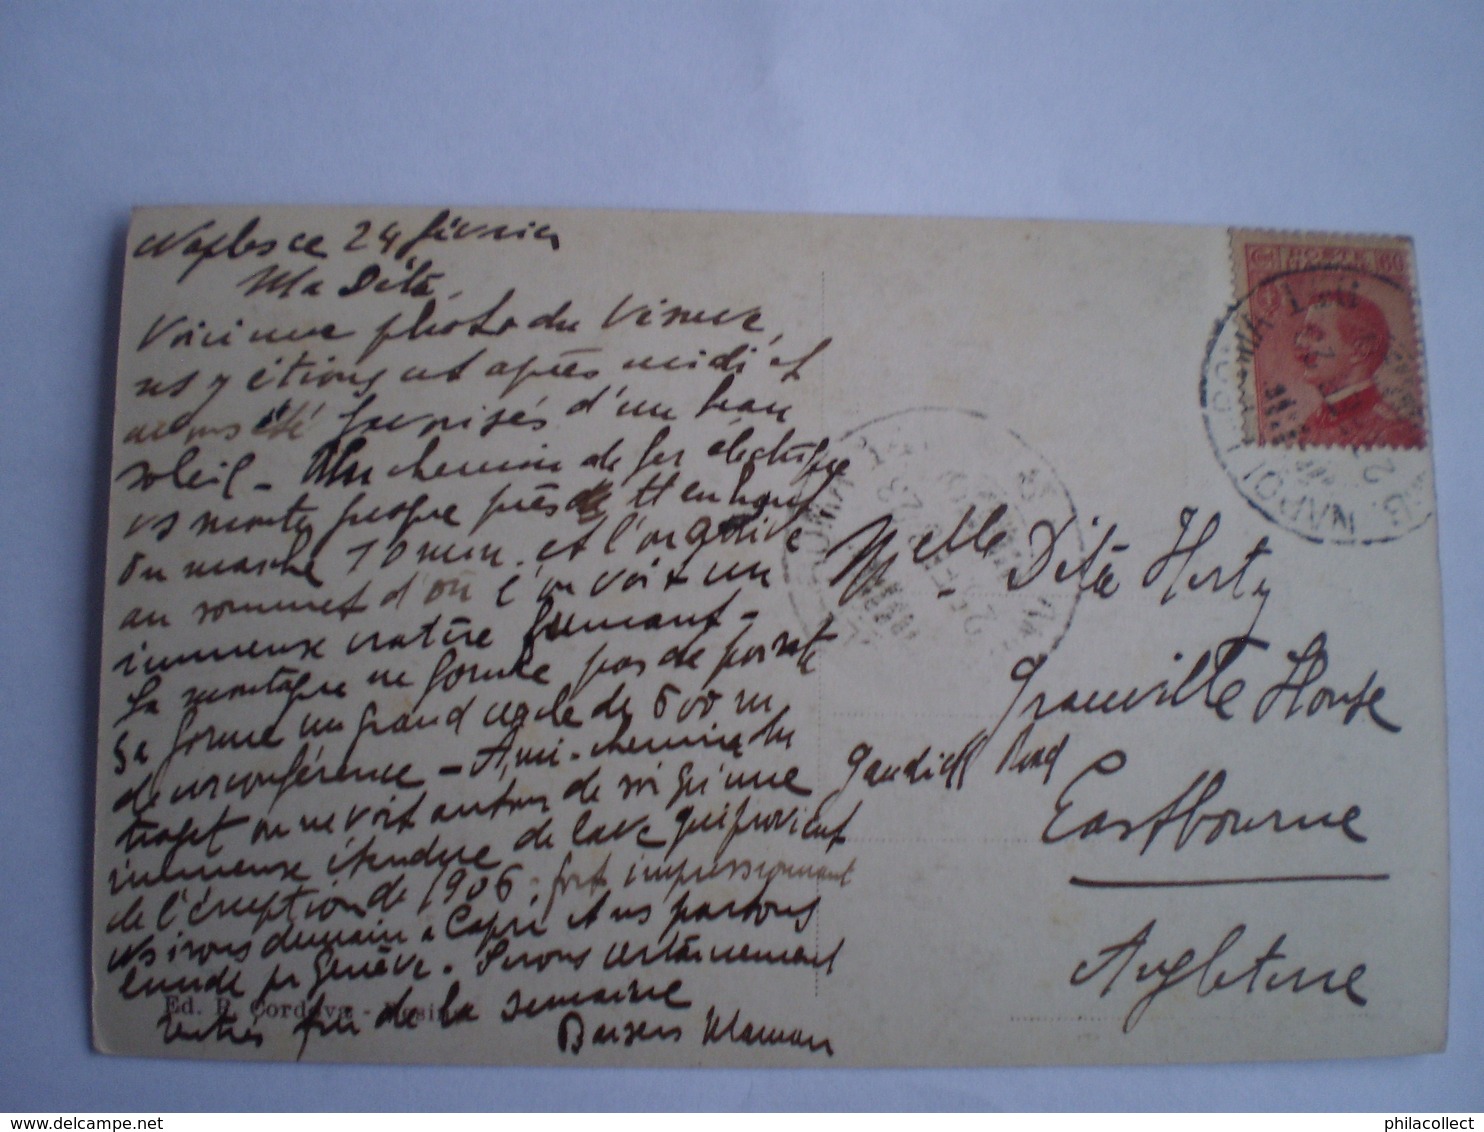 Naples ce 24 février
Ma Dita,
Voici une photo du Vésuve,
ns y étions cet après midi et
avons été favorisés d'un beau
soleil - Un chemin de fer électrique
vs monte presque près de tt en haut
on marche 10 min. et l'on arrive
au sommet d'où l'on voit un
immense cratère fumant -
La montagne ne forme pas de pointe
Sa forme un grand cercle de 600 m
de circonférence - A mi-chemin du
trajet on ne voit autour de soi qu'une
immense étendue de lave qui provient
de l'éruption de 1906 - fort impressionnant
Ns irons demain à Capri et ns partons
lundi pr Genève. Serons certainement
rentrés fin de la semaine
Baisers Maman
Ed. R. Cordova -
Melle Dita Herty
Granville House
Gaudick Road
Eastbourne
Angleterre
POSTE
60
NAPOLI
philacollect